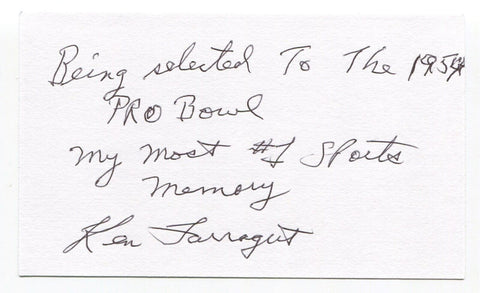 Being selected To The 1954
PRO Bowl
My Most #1 Sports
Memory
Ken Farragut